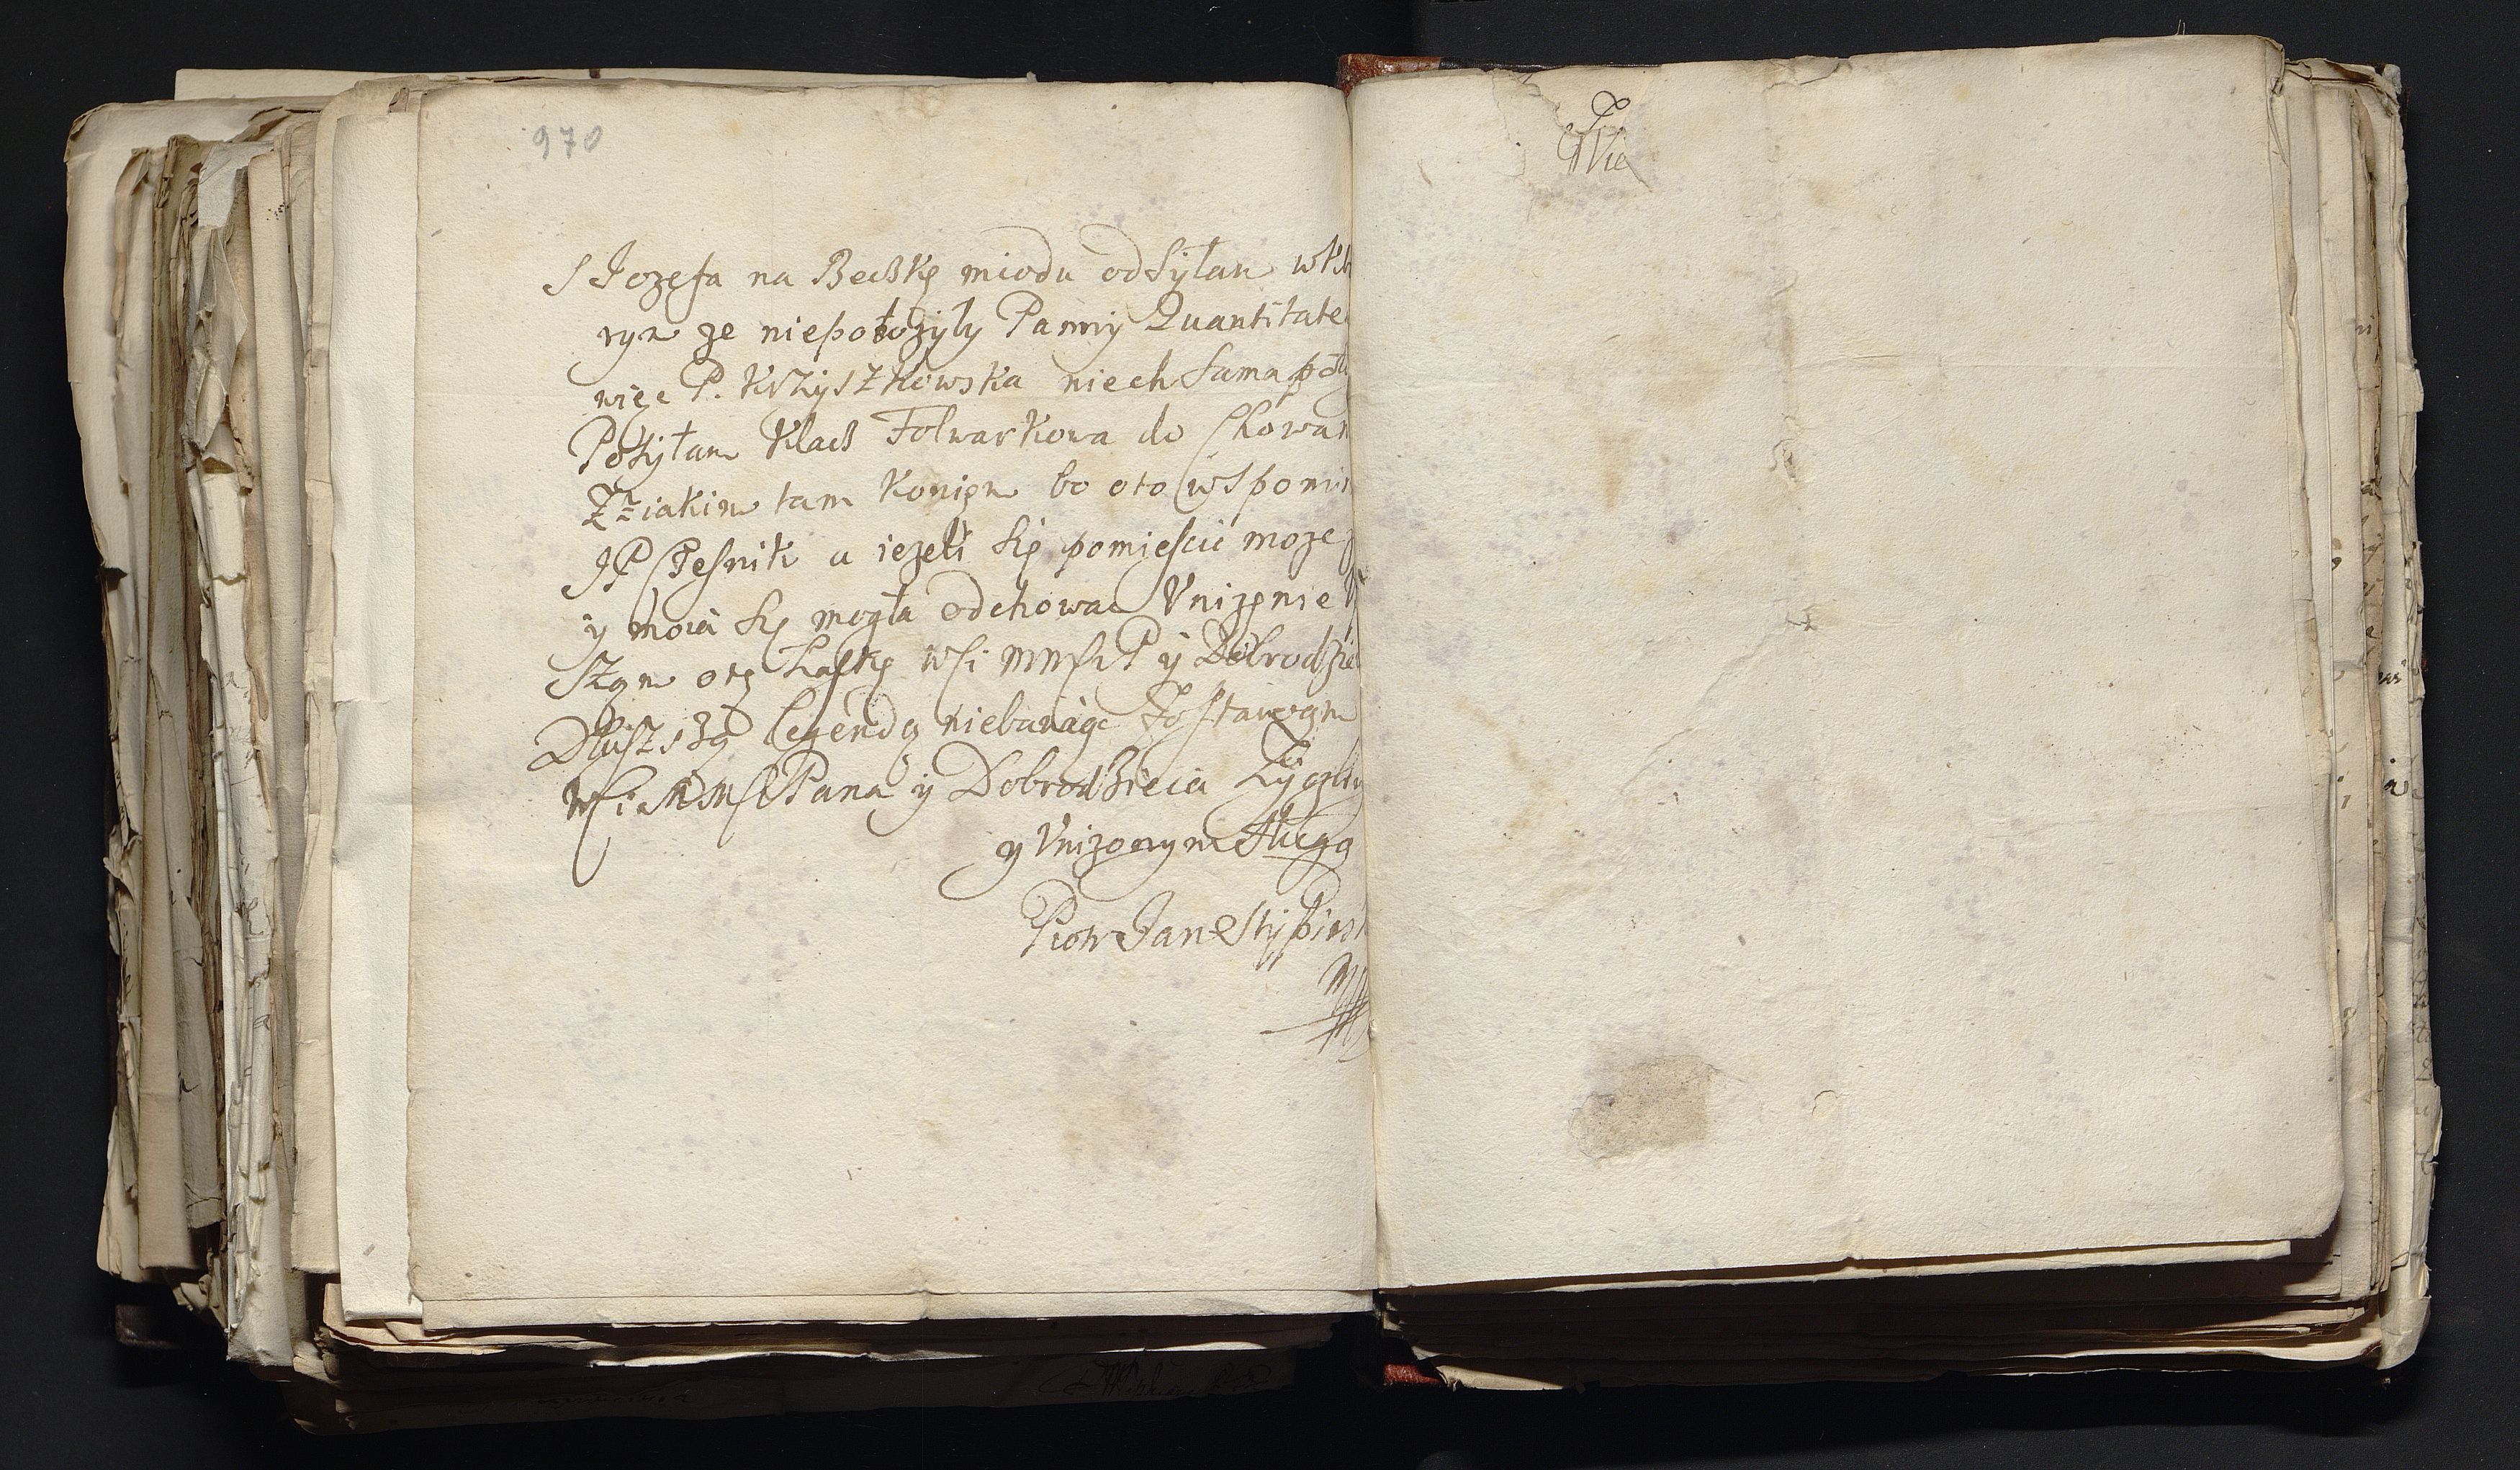 970
S Jozefa na Beczkę miodu odsyłam wkt
rym ze niepołozyły Panny Quantitate
więc P. Krzyszkowska niech sama poł
Posyłam Klacz Folwarkowa do Chowan
z iakim tam Koniem bo oto wspomi
JP Czesnik a iezeli się pomieścić moze
y moia się mogła odchowac Vnizenie
szę o tę Łaskę WSi MMSCP y Dobrodzie
Dłuszszą legendą niebawiąc Zostawam
WSi MMSCPana y Dobrodzieia Zyczliw
y Vnizonym Sługą
Piotr Jan Stypins
Wie